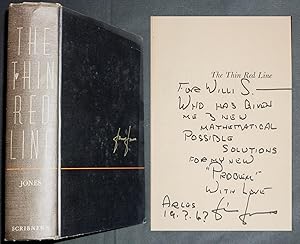 THE
THIN
RED
LINE
JONES
SCRIBNERS
The Thin Red Line
FOR WILLI S.—
WHO HAS GIVEN
ME 3 NEW
MATHEMATICAL
POSSIBLE
SOLUTIONS
FOR MY NEW
"PROBLEM"
WITH LOVE